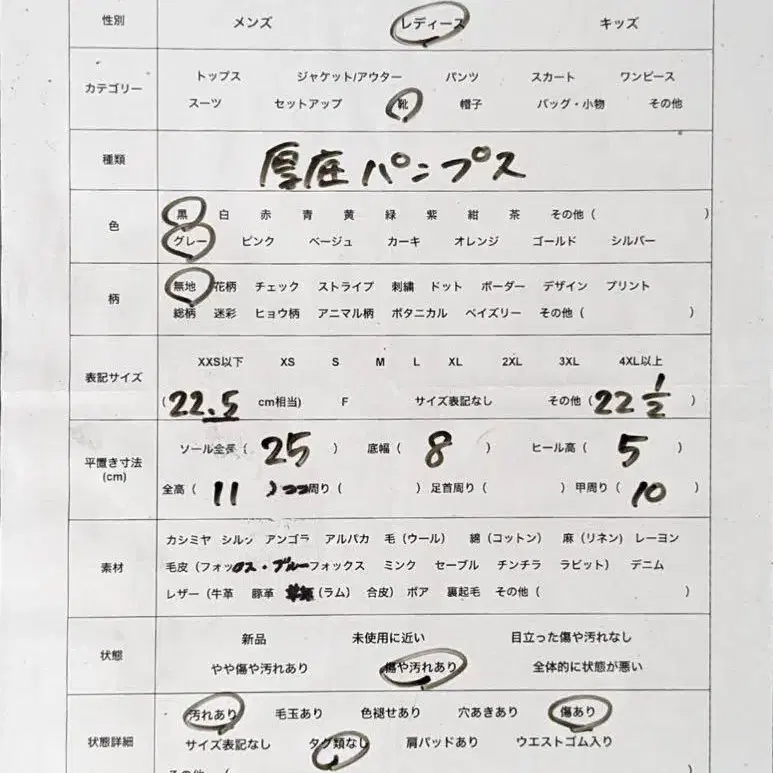 性別 メンズ レディース キッズ
カテゴリー
トップス ジャケット/アウター パンツ スカート ワンピース
スーツ セットアップ 靴 帽子 バッグ・小物 その他
種類 厚底パンプス
色
黒 白 赤 青 黄 緑 紫 紺 茶 その他 ( )
グレー ピンク ベージュ カーキ オレンジ ゴールド シルバー
柄
無地 花柄 チェック ストライプ 刺繍 ドット ボーダー デザイン プリント
総柄 迷彩 ヒョウ柄 アニマル柄 ボタニカル ペイズリー その他 ( )
表記サイズ
XXS以下 XS S M L XL 2XL 3XL 4XL以上
( 22.5 cm相当) F サイズ表記なし その他 ( 22 1/2 )
平置き寸法
(cm)
ソール全長 ( 25 ) 底幅 ( 8 ) ヒール高 ( 5 )
全高 ( 11 ) 周り ( ) 足首周り ( ) 甲周り ( 10 )
素材
カシミヤ シルク アンゴラ アルパカ 毛 (ウール) 綿 (コットン) 麻 (リネン) レーヨン
毛皮 (フォックス・ブルーフォックス ミンク セーブル チンチラ ラビット) デニム
レザー (牛革 豚革 (ラム) 合皮) ボア 裏起毛 その他 ( )
状態
新品 未使用に近い 目立った傷や汚れなし
やや傷や汚れあり 傷や汚れあり 全体的に状態が悪い
状態詳細
汚れあり 毛玉あり 色褪せあり 穴あきあり 傷あり
サイズ表記なし タグ類なし 肩パッドあり ウエストゴム入り
その他 (